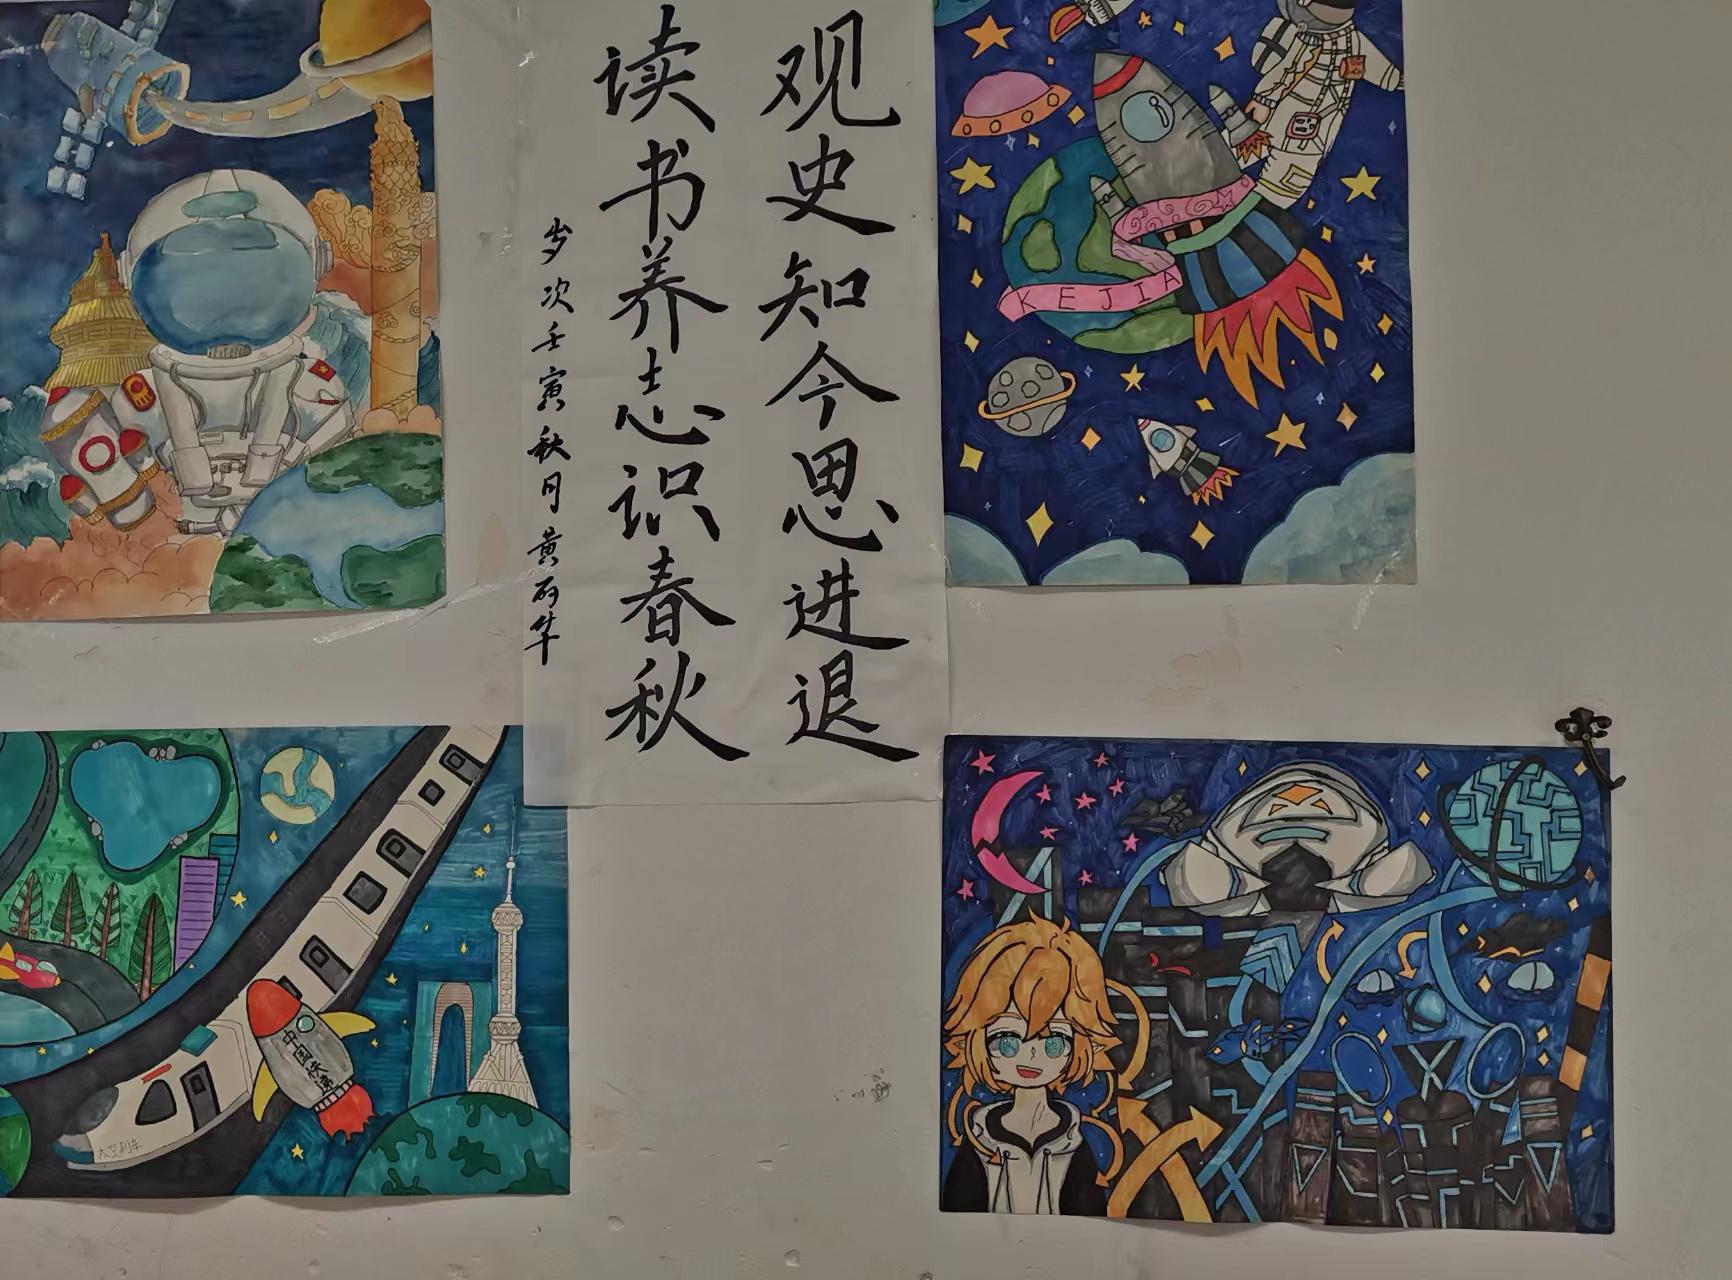 观史知今思进退
读书养志识春秋
岁次壬寅秋月黄丽华
KEJIA
中国快递
太空列车